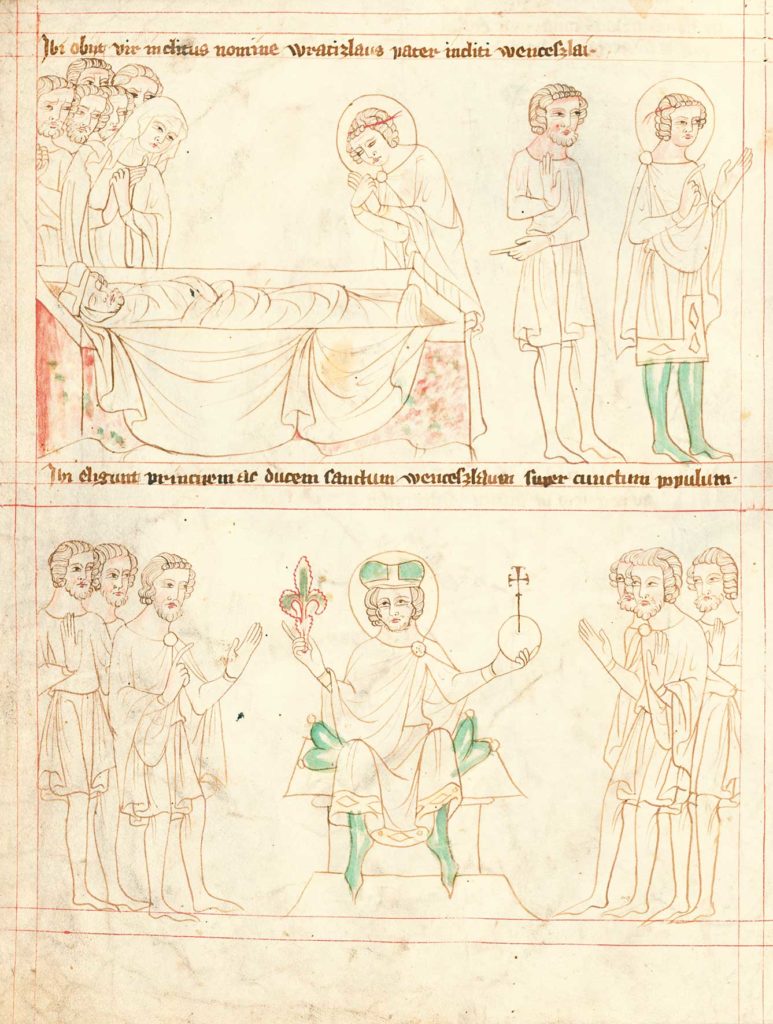 Ibi obiit vir inclitus nomine wratizlaus pater incliti wenceszlai·
Ibi eligunt principem ac ducem sanctum wenceszlaum super cunctum populum·